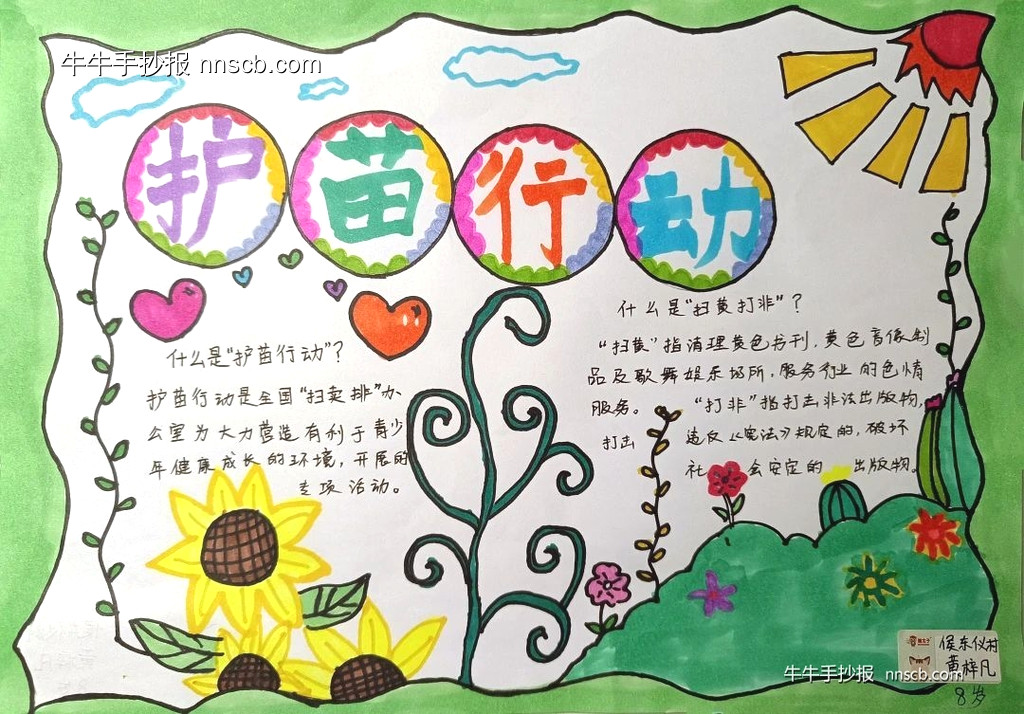 牛牛手抄报 nnscb.com
护苗行动
什么是“护苗行动”？
护苗行动是全国“扫卖排”办
公室为大力营造有利于青少
年健康成长的环境，开展的
专项活动。
什么是“扫黄打非”？
“扫黄”指清理黄色书刊，黄色音像制
品及歌舞娱乐场所，服务行业的色情
服务。 “打非”指打击非法出版物，
打击 违反《宪法》规定的，破坏
社 会安定的 出版物。
侯东仪村
黄梓凡
8岁
牛牛手抄报 nnscb.com